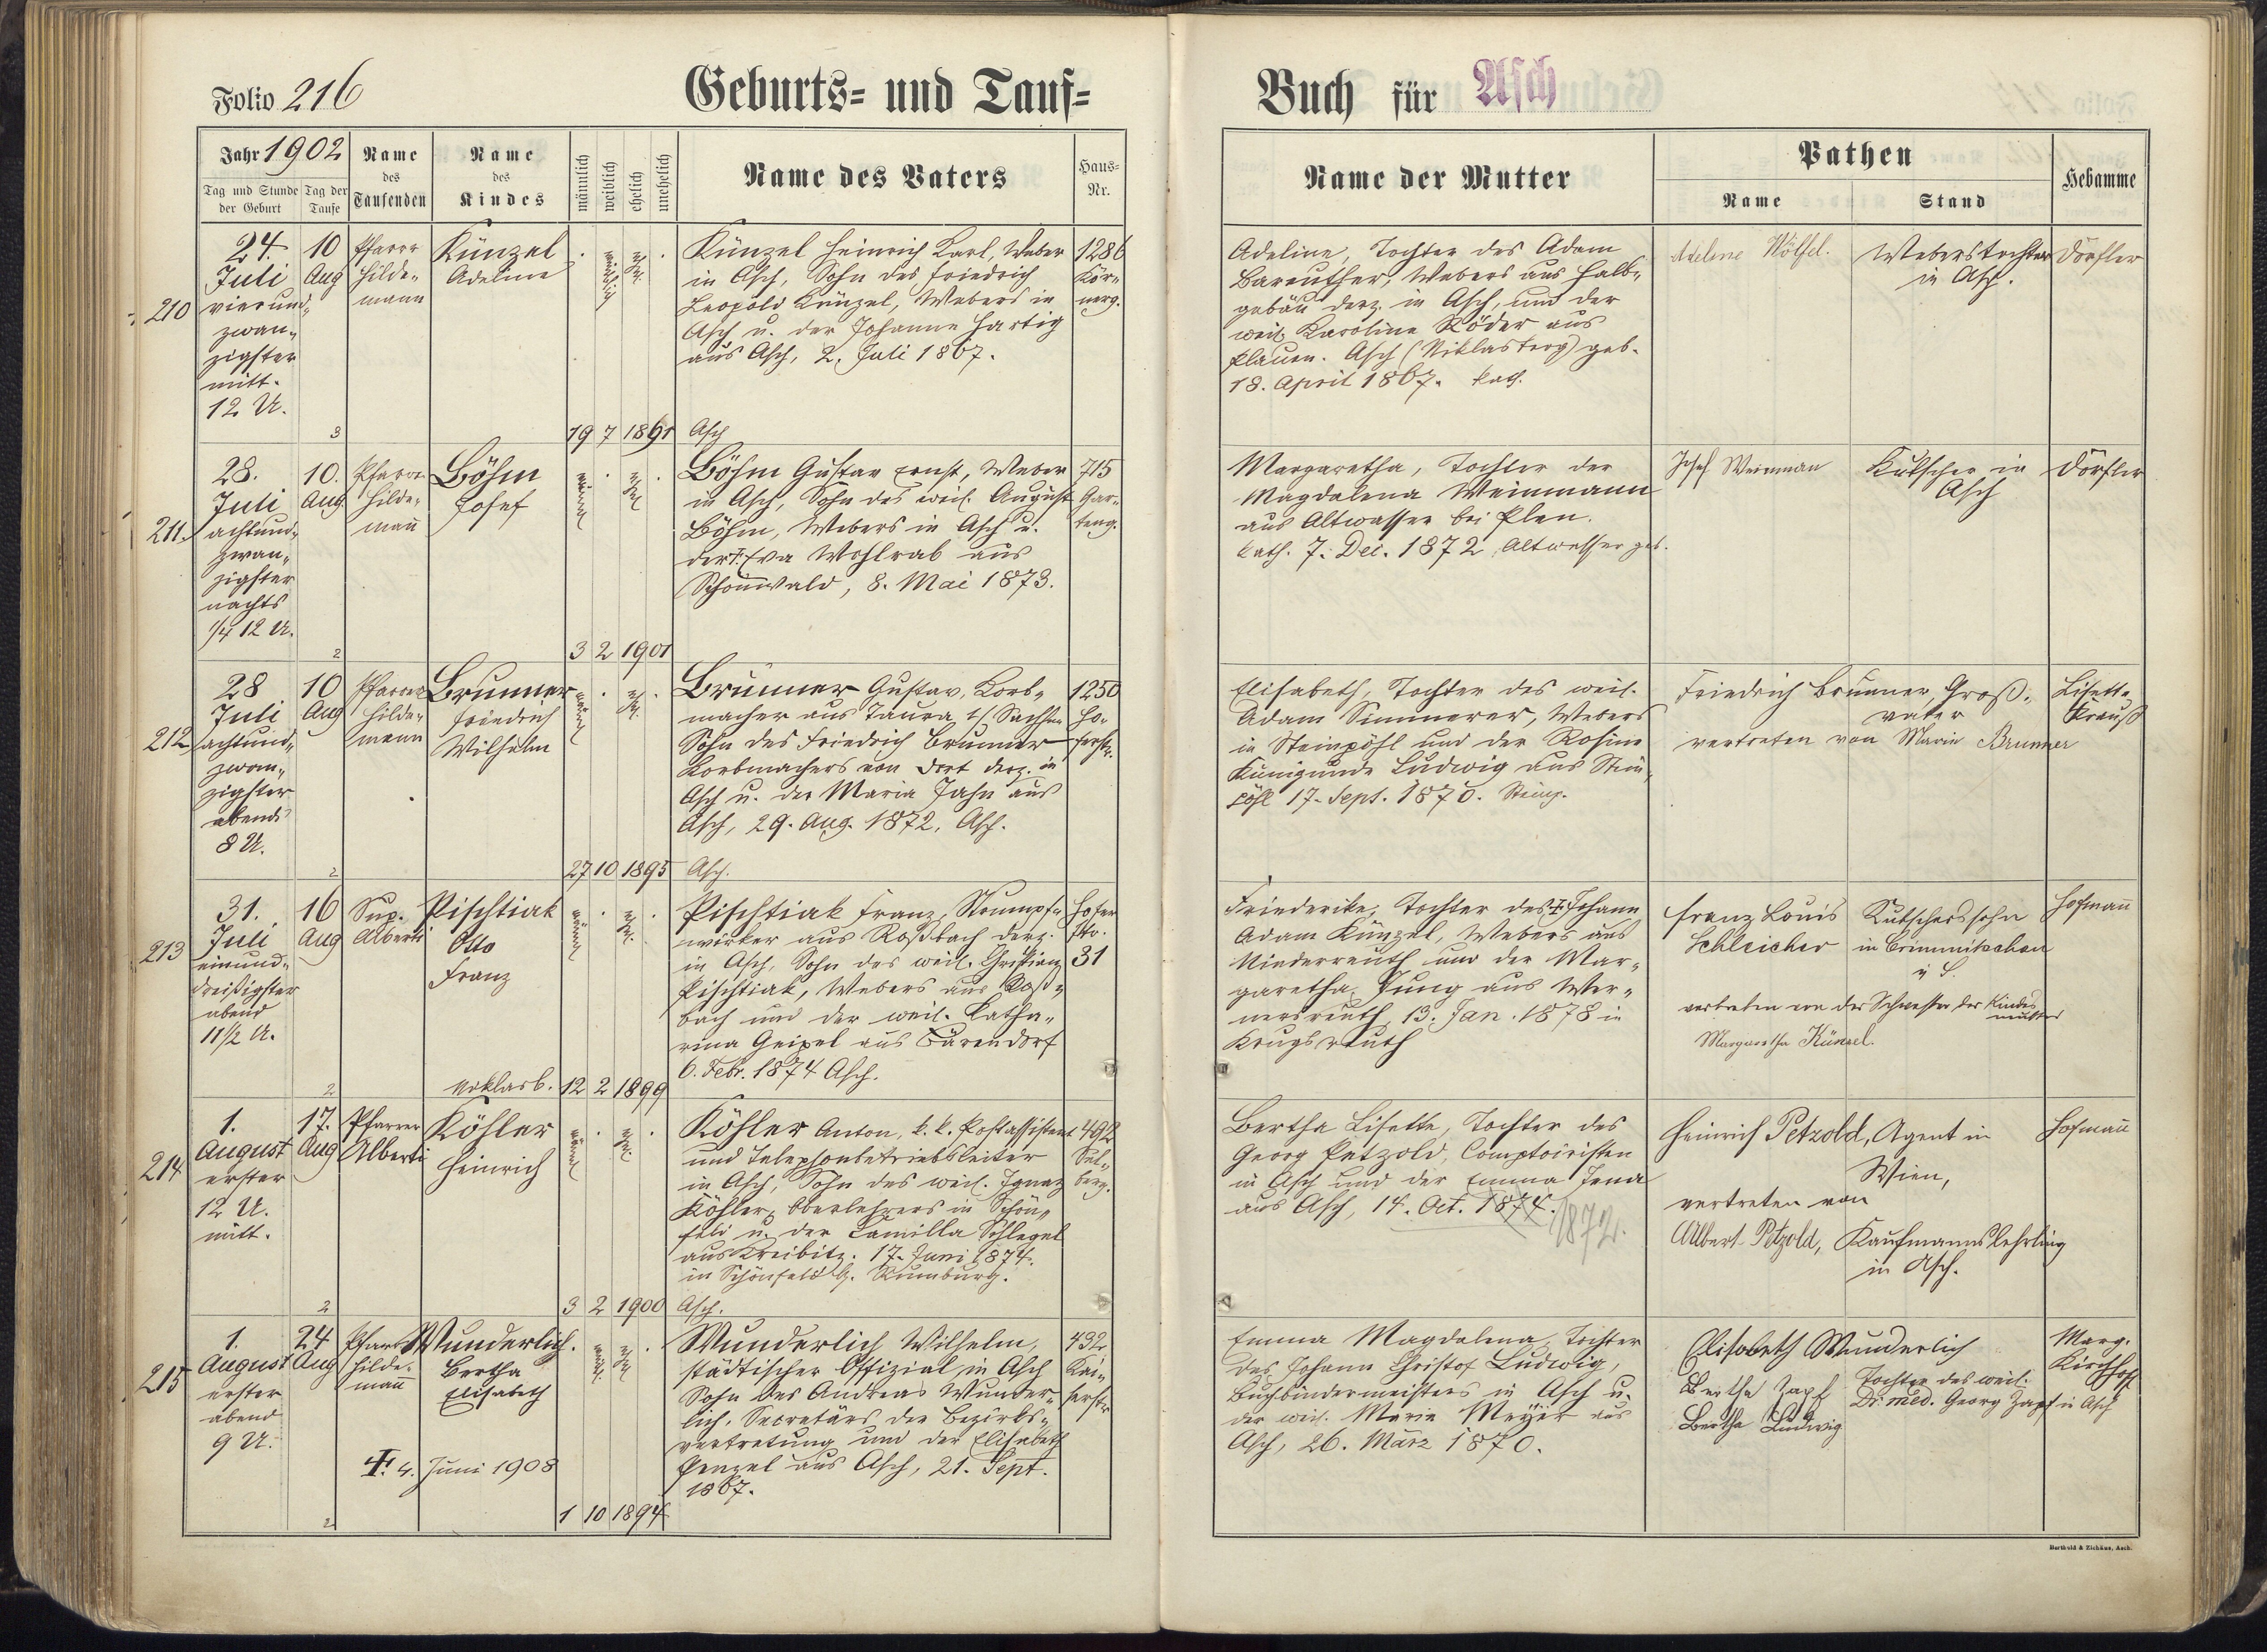 Folio 216
Geburts- und Tauf-
Buch für Asch
Jahr 1902
Tag und Stunde der Geburt
Tag der Taufe
Name des Taufenden
Name des Kindes
männlich
weiblich
ehelich
unehelich
Name des Vaters
Haus-Nr.
Name der Mutter
Pathen
Name
Stand
Hebamme
210
24.
Juli
vierund-
zwan-
zigster
mitt.
12 U.
10
Aug
Pfarrer
Hilde-
mann
Künzel
Adeline
Künzel Heinrich Karl, Weber
in Asch, Sohn des Friedrich
Leopold Künzel, Webers in
Asch u. der Johanne Hartig
aus Asch, 2. Juli 1867.
1286
Kör-
nerg.
Adeline, Tochter des Adam
Bareuther, Webers aus Halb-
gebäu derz. in Asch, und der
weil. Karoline Röder aus
Plauen. Asch (Niklasberg) geb.
18. April 1867. kath.
Adeline Wölfel.
Weberstochter
in Asch.
Dörfler
3
19 7 1891 Asch
211.
28.
Juli
achtund-
zwan-
zigster
nachts
1/4 12 U.
10.
Aug
Pfarrer
Hilde-
mann
Böhm
Josef
Böhm Gustav Ernst, Weber
in Asch, Sohn des weil. August
Böhm, Webers in Asch u.
der Eva Wohlrab aus
Schönwald, 8. Mai 1873.
715
Gar-
teng.
Margaretha, Tochter der
Magdalena Weinmann
aus Altwasser bei Plan.
kath. 7. Dez. 1872 Altwasser geb.
Josef Weinman
Kutscher in
Asch
Dörfler
2
3 2 1901
212
28
Juli
achtund-
zwan-
zigster
abends
8 U.
10
Aug
Pfarrer
Hilde-
mann
Brunner
Friedrich
Wilhelm
Brunner Gustav, Korb-
macher aus Taura i/ Sachsen
Sohn des Friedrich Brunner
Korbmachers von dort derz. in
Asch u. der Maria Jahn aus
Asch, 29. Aug. 1872. Asch.
1250
Ho-
ferstr.
Elisabeth, Tochter des weil.
Adam Simmerer, Webers
in Steinpöhl und der Rosine
Kunigunde Ludwig aus Stein-
pöhl 17. Sept. 1870. Steinp.
Friedrich Brunner, Groß-
vater
vertreten von Marie Brunner
Lisette
Krauß
2
27 10 1895 Asch.
213
31.
Juli
einund-
dreißigster
abend
11 1/2 U.
16
Aug
Sup.
Alberti
Pischtiak
Otto
Franz
Pischtiak Franz, Strumpf-
wirker aus Roßbach derz.
in Asch, Sohn des weil. Christian
Pischtiak, Webers aus Roß-
bach und der weil. Katha-
rina Geipel aus Bärendorf
6. Febr. 1874 Asch.
Hofer
Str.
31
Friederike, Tochter des Johann
Adam Künzel, Webers aus
Niederreuth und der Mar-
garetha Jung aus Wer-
nersreuth, 13. Jan. 1878 in
Krugsreuth
Franz Louis
Schleicher
Kutscherssohn
in Crimmitschau
i S.
vertreten von der Schwester der Kindes-
mutter
Margaretha Künzel.
Hofmann
2
12 2 1899
214
1.
August
erster
12 U.
mitt.
17.
Aug
Pfarrer
Alberti
Köhler
Heinrich
Köhler Anton, k. k. Postassistent
und Telephonbetriebsleiter
in Asch, Sohn des weil. Ignaz
Köhler, Oberlehrers in Schön-
feld u. der Camilla Schlegel
aus Kreibitz. 17. Juni 1874.
in Schönfeld b. Rumburg.
492
Sel-
berg.
Bertha Lisette, Tochter des
Georg Petzold, Comptoiristen
in Asch und der Emma Jena
aus Asch, 14. Oct. 1874.
1872.
Heinrich Petzold, Agent in
Wien,
vertreten von
Albert Petzold, Kaufmannslehrling
in Asch.
Hofmann
2
3 2 1900 Asch.
215
1.
August
erster
abend
9 U.
24
Aug
Pfarrer
Hilde-
mann
Wunderlich.
Bertha
Elisabeth
4. Juni 1908
Wunderlich Wilhelm,
städtischer Offizial in Asch
Sohn des Andreas Wunder-
lich, Secretärs der Bezirks-
vertretung und der Elisabeth
Penzel aus Asch, 21. Sept.
1867.
432
Kai-
serstr
Emma Magdalena, Tochter
des Johann Christof Ludwig,
Buchbindermeisters in Asch u.
der weil. Marie Meyer aus
Asch, 26. März 1870.
Elisabeth Wunderlich
Bertha Zapf
Tochter des weil.
Dr. med. Georg Zapf in Asch
Bertha Ludwig
Marg.
Kirchhoff
2
1 10 1894
Berthold & Zichäus, Asch.